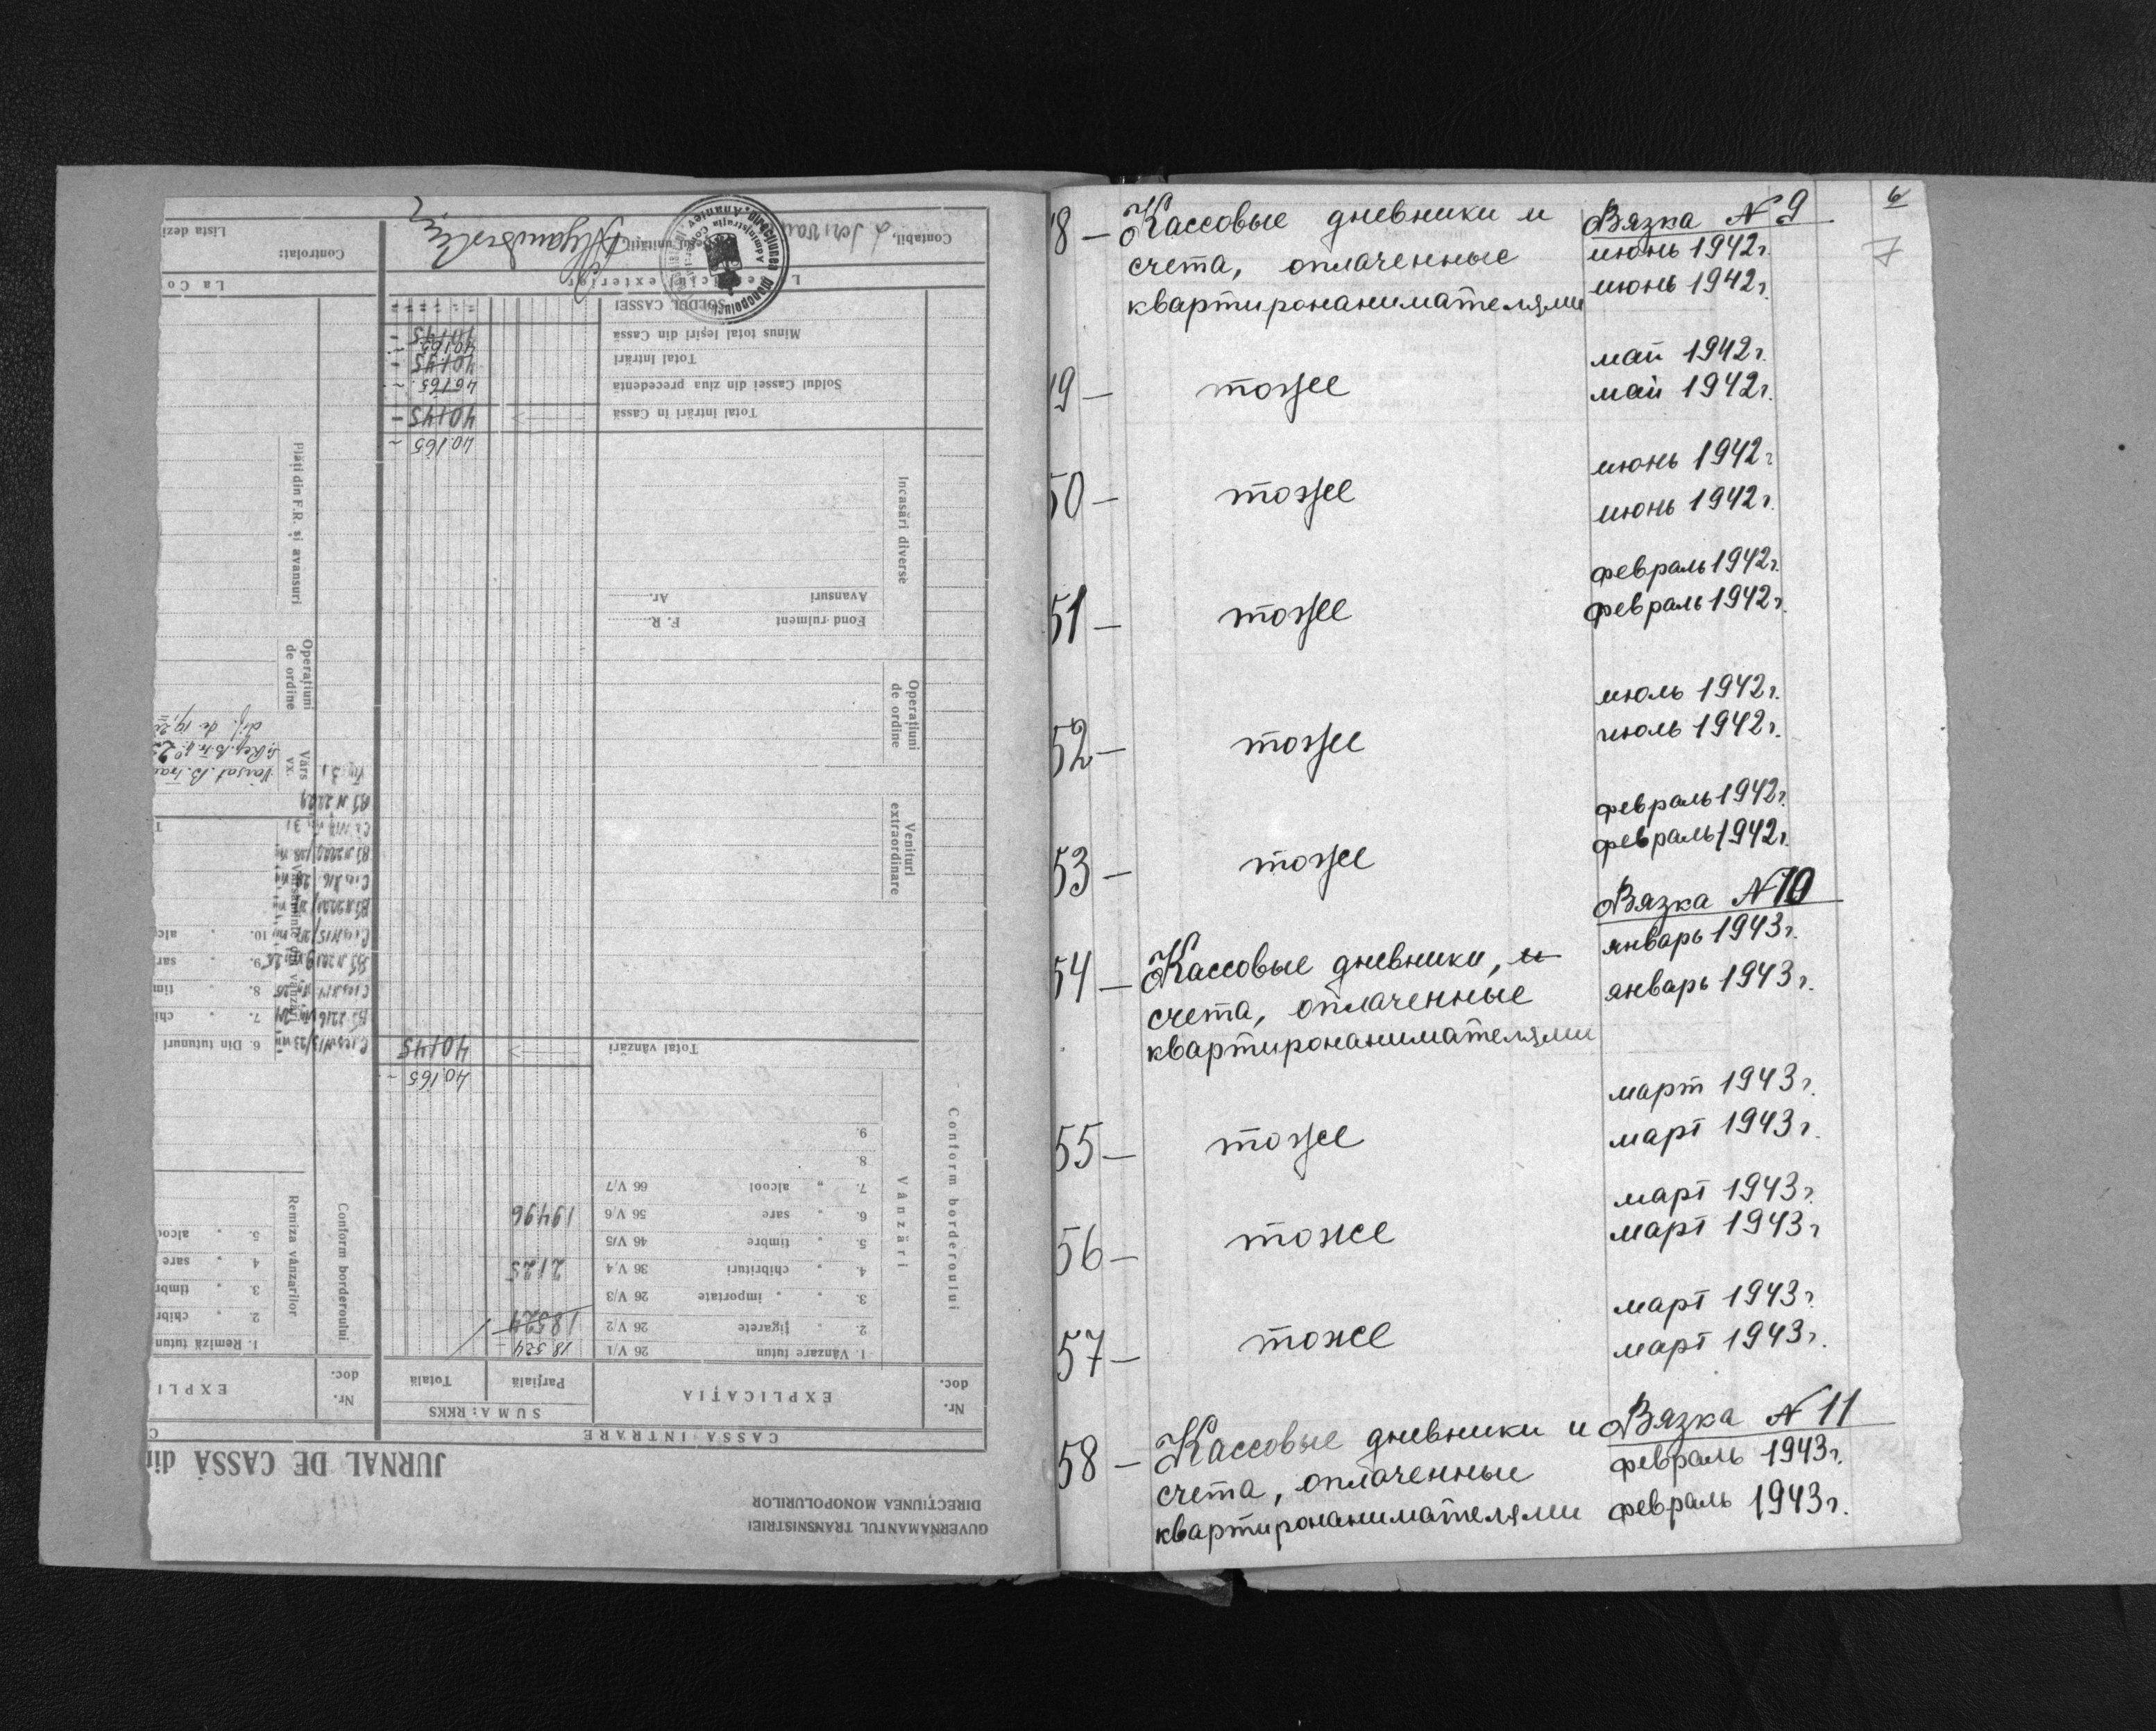 GUVERNAMANTUL TRANSNISTRIEI
DIRECȚIUNEA MONOPOLURILOR
JURNAL DE CASSĂ din
CASSA INTRARE
Nr. doc.
EXPLICAȚIA
SUMA: RKKS
Parțială
Totală
Conform borderoului
Vânzări
1. Vânzare tutun 26 V/1 18.524 -
2. " țigarete 26 V/2 18524
3. " " importate 26 V/3
4. " chibrituri 36 V/4 2125
5. " timbre 46 V/5
6. " sare 56 V/6 19496
7. " alcool 66 V/7
8.
9.
40.165 -
Total vânzări 40145
Venituri extraordinare
Operațiuni de ordine
Fond rulment F. R.
Avansuri Ar.
Incasări diverse
40.165 -
Total intrări în Cassă 40145 -
Soldul Cassei din ziua precedentă
Total Intrări 40145 -
Minus total Ieșiri din Cassă
SOLDUL CASSEI
Contabil,
Șeful unității
Administrația
Ananiev
Nr. doc.
EXPLI
Conform borderoului
Remiza vânzarilor
1. Remiză tutun
2. " chibr
3. " timbr
4. " sare
5. " alcoo
6. Din tutunuri
7. " chi
8. " tim
9. " sar
10. " alc
Vărs
Operațiuni de ordine
Plăți din F.R. și avansuri
La Co
Controlat:
Lista dezi
6
7
8 — Кассовые дневники и Вязка N 9
счета, оплаченные июнь 1942г.
квартиронанимателями июнь 1942г.
май 1942г.
9 — тоже май 1942г.
июнь 1942г
50 — тоже июнь 1942г.
февраль 1942г.
51 — тоже февраль 1942г.
июль 1942г.
52 — тоже июль 1942г.
февраль 1942г.
53 — тоже февраль 1942г.
Вязка N 10
54 — Кассовые дневники, и январь 1943г.
счета, оплаченные январь 1943г.
квартиронанимателями
март 1943г.
55 — тоже март 1943г.
март 1943г.
56 — тоже март 1943г
март 1943г.
57 — тоже март 1943г.
58 — Кассовые дневники и Вязка N 11
счета, оплаченные февраль 1943г.
квартиронанимателями февраль 1943г.